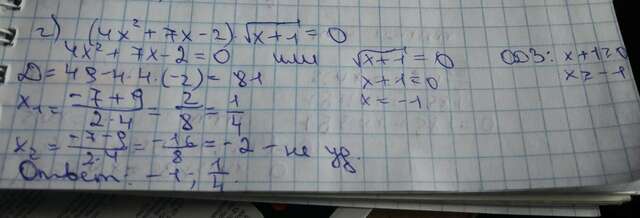 г) (4x² + 7x - 2)·√x+1 = 0
4x² + 7x - 2 = 0 или √x+1 = 0 ОДЗ: x+1≥0
Д = 49 - 4·4·(-2) = 81 x+1=0 x ≥ -1
x₁ = -7+9/2·4 = 2/8 = 1/4 x = -1
x₂ = -7-9/2·4 = -16/8 = -2 - не уд.
Ответ: -1; 1/4.